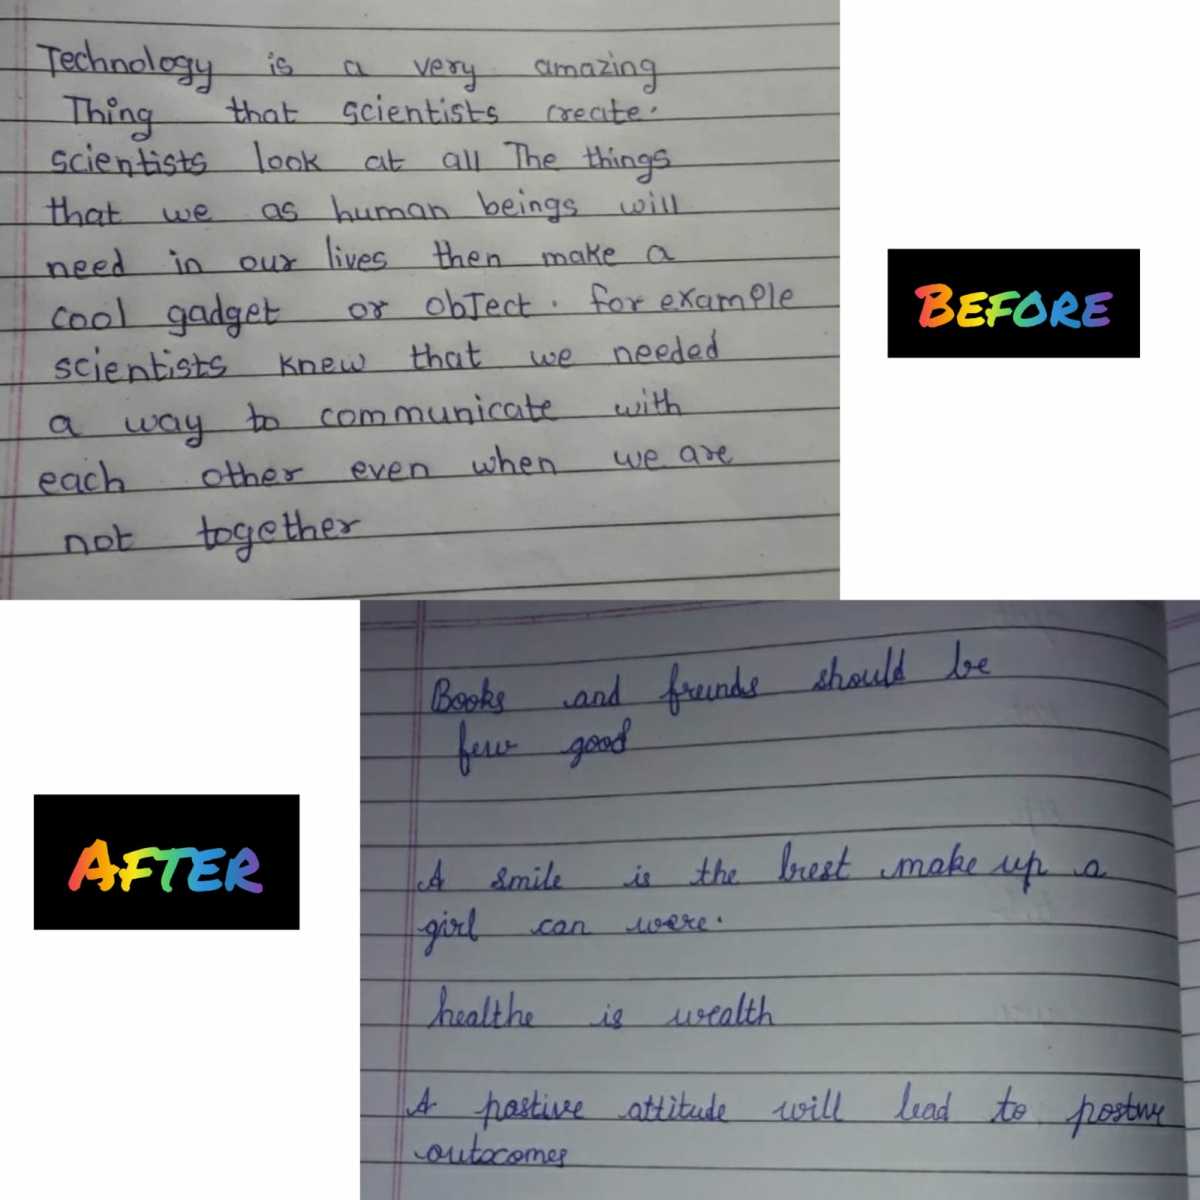 Technology is a very amazing
Thing that scientists create.
scientists look at all The things
that we as human beings will
need in our lives then make a
cool gadget or obJect. for example
scientists knew that we needed
a way to communicate with
each other even when we are
not together
BEFORE
AFTER
Books and freinds should be
few good
A smile is the brest make up a
girl can were.
healthe is wealth
A postive attitude will lead to
outocomes